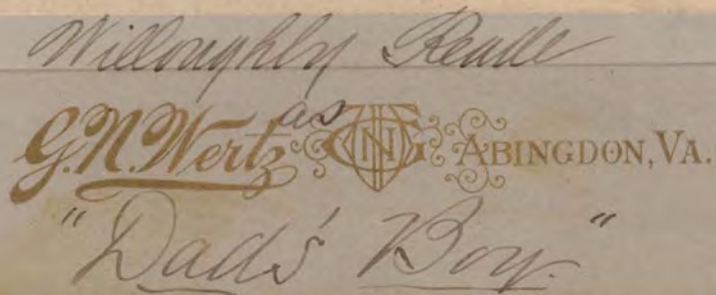 Willoughby Reade
as
G.N. Wertz GNW ABINGDON, VA.
"Dad's Boy."